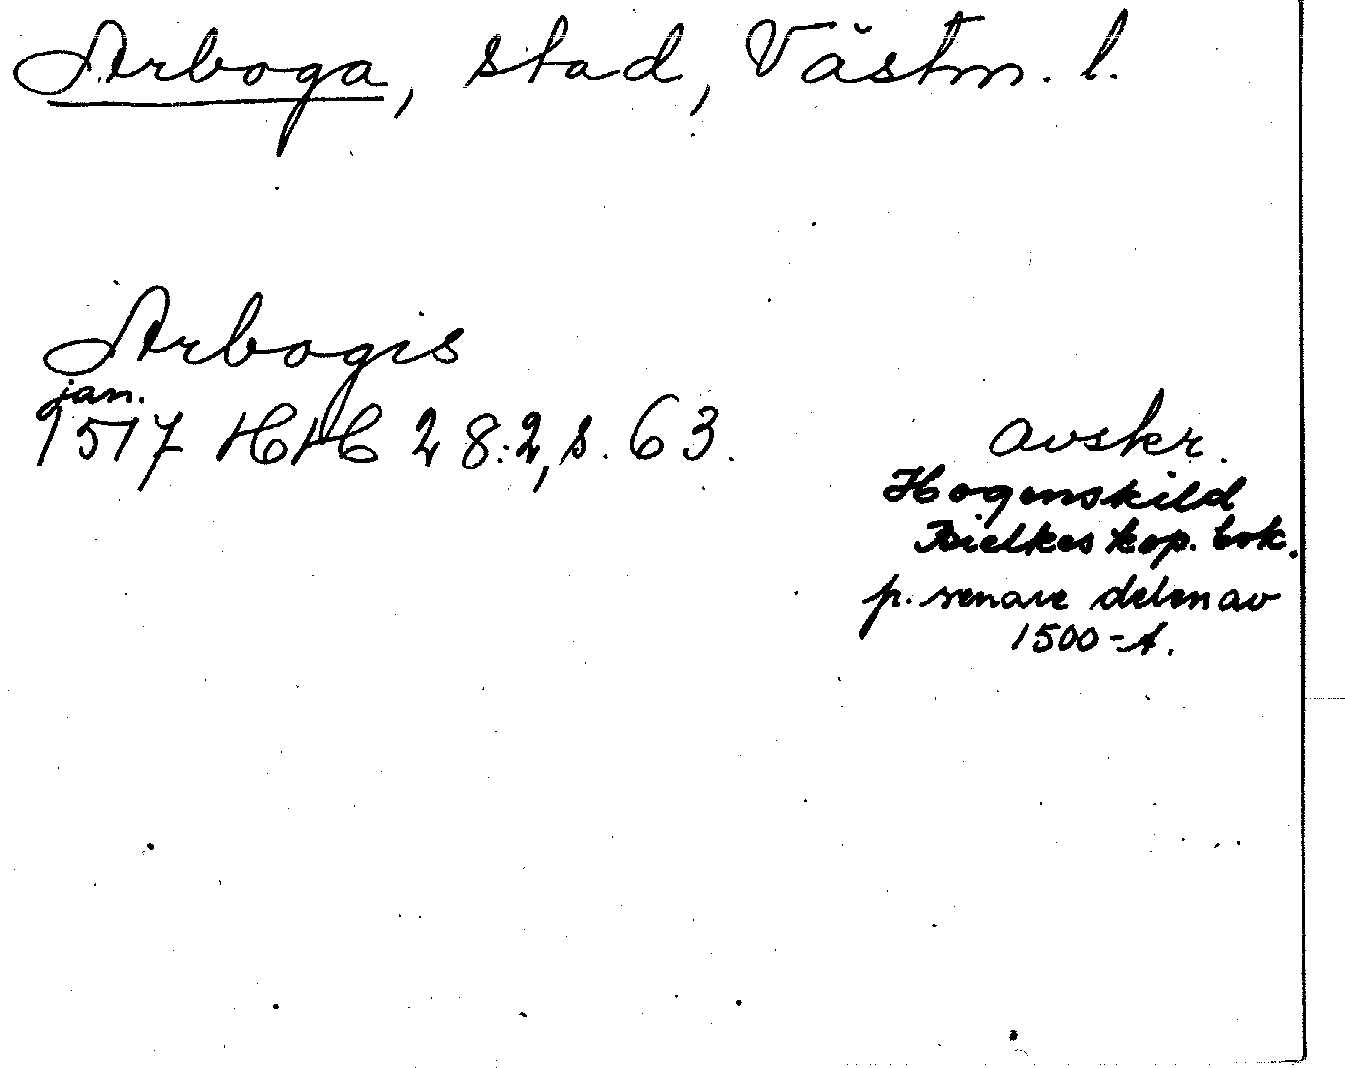 Arboga, stad, Västm. l.
Arbogis
jan.
1517 HH 28:2, s. 63.
avskr.
Hogenskild
Bielkes kop. bok.
p. senare delen av
1500-t.